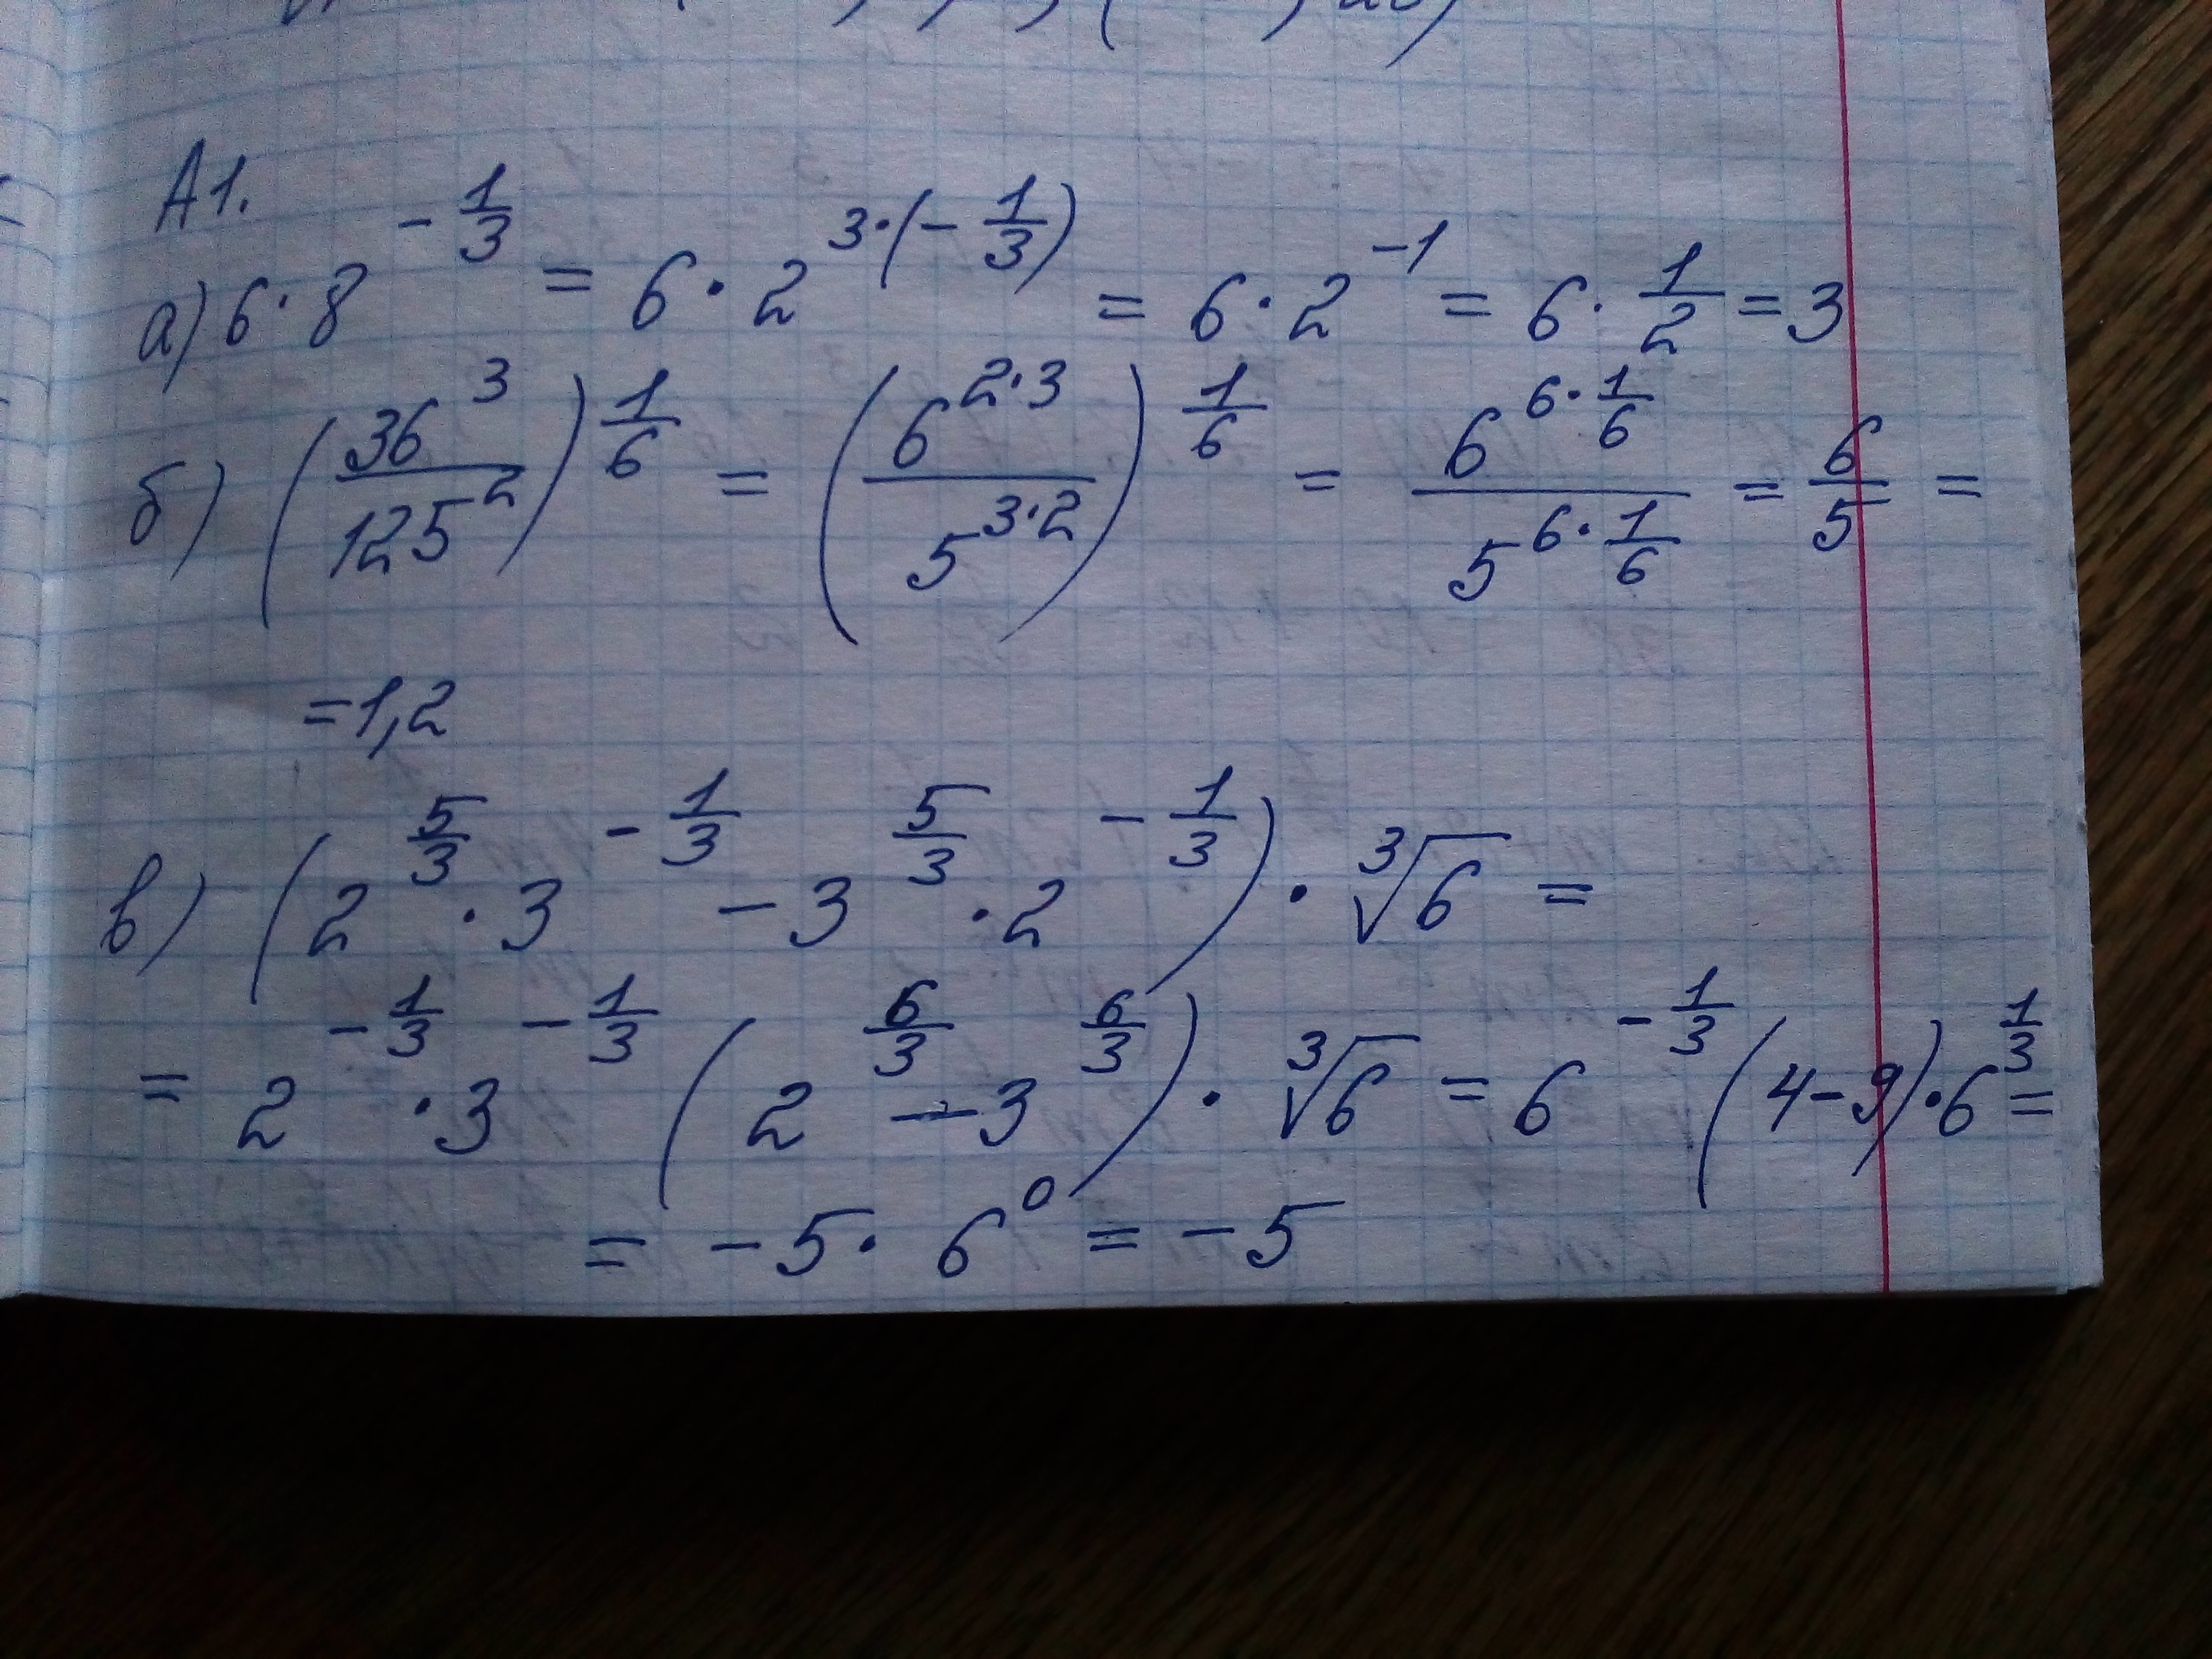 А1.
а) 6 · 8^(-1/3) = 6 · 2^(3·(-1/3)) = 6 · 2^(-1) = 6 · 1/2 = 3
б) (36^3/125^2)^(1/6) = (6^(2·3)/5^(3·2))^(1/6) = 6^(6·1/6)/5^(6·1/6) = 6/5 =
= 1,2
в) (2^(5/3) · 3^(-1/3) - 3^(5/3) · 2^(-1/3)) · ∛6 =
= 2^(-1/3) · 3^(-1/3) (2^(6/3) - 3^(6/3)) · ∛6 = 6^(-1/3) (4-9) · 6^(1/3) =
= -5 · 6^0 = -5